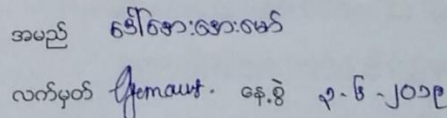 အမည် ဒေါ်အေးအေးမော်
လက်မှတ် နေ့စွဲ ၃-၆-၂၀၁၉